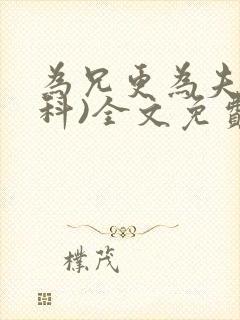 為兄更為夫
科)全文免費
樸茂